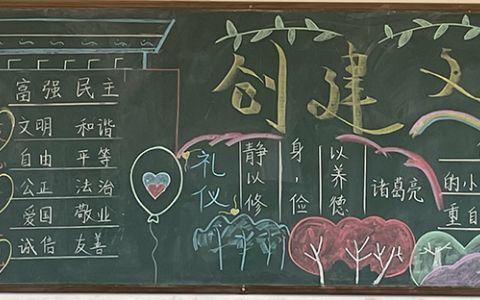 创建文
富强 民主
文明 和谐
自由 平等
公正 法治
爱国 敬业
诚信 友善
礼仪
静以修
身，俭
以养德
诸葛亮
的小
重自